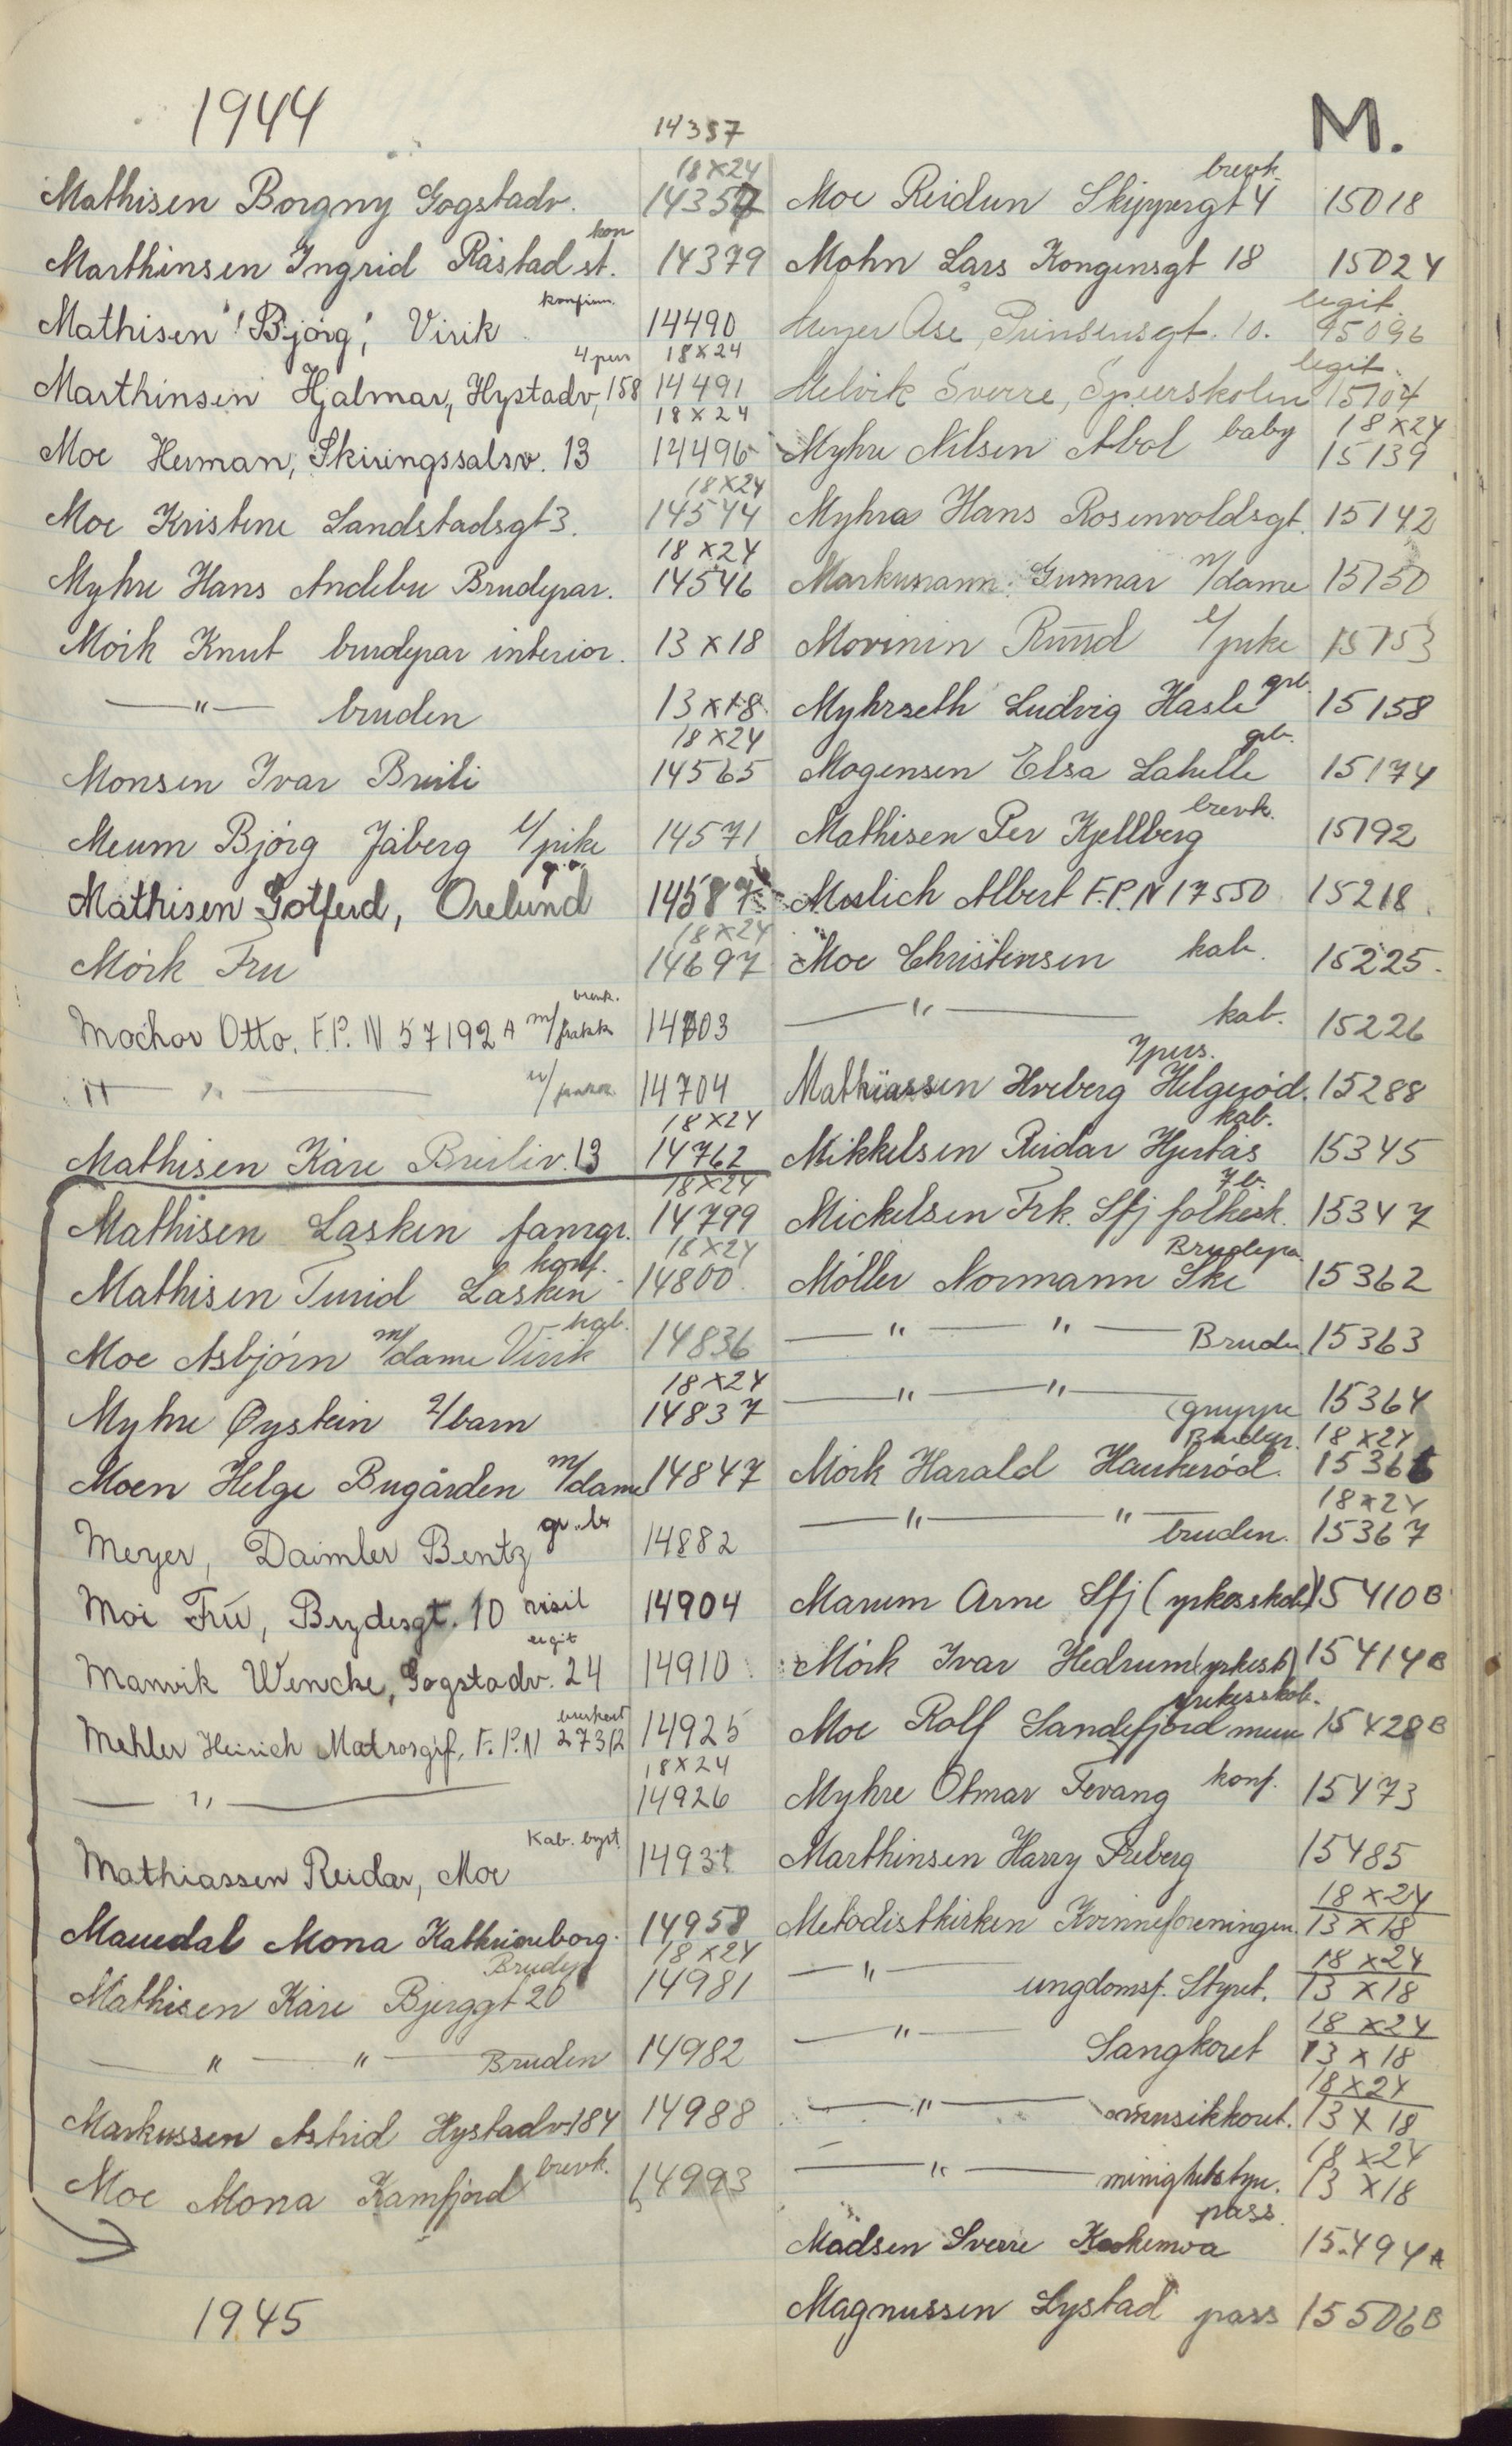 1944
14357
M.
18x24
Mathisen Borgny Gogstadv. 14357
kon
Marthinsen Ingrid Råstad st. 14379
konfirm.
Mathisen "Bjørg", Virik 14490
4 pers 18x24
Marthinsen Hjalmar, Hystadv, 158 14491
18x24
Moe Herman, Skiringssalsv. 13 14496
18x24
Moe Kristine Landstadsgt 3. 14544
18x24
Myhre Hans Andebu Brudepar. 14546
Mörk Knut brudepar interior. 13x18
— " — bruden 13x18
18x24
Monsen Ivar Breili 14565
Meum Bjørg Jåberg l/pike 14571
Mathisen Gotferd, Orelund 14587
18x24
Mörk Fru 14697
brevk.
Mochor Otto. F.P. N 57192 A m/frakk 14703
— " — u/frakk 14704
18x24
Mathisen Kåre Breiliv. 13 14762
18x24
Mathisen Lasken famgr. 14799
konf. 18x24
Mathisen Turid Lasken 14800
kab.
Moe Asbjørn m/dame Virik 14836
18x24
Myhre Øystein 2/barn 14837
Moen Helge Bugården m/dame 14847
gr. b
Meyer, Daimler Bentz 14882
Moi Fru, Brydesgt. 10 visit 14904
legit
Manvik Wencke, Gogstadv. 24 14910
Mehler Heinrich Matrosgif, F.P.N 27312 14925
18x24
— " — 14926
Kab. byst.
Mathiassen Reidar, Moe 14931
Mauedal Mona Kathrineborg. 14958
Brudep 18x24
Mathisen Kåre Bjerggt 20 14981
— " — " — Bruden 14982
Markussen Astrid Hystadv 184 14988
brevk.
Moe Mona Kamfjord 14993
1945
brevk.
Moe Reidun Skippergt 4 15018
Mohn Lars Kongensgt 18 15024
legit
Meyer Åse, Prinsensgt. 10. 15096
legit.
Melvik Sverre, Speerskolen 15104
18x24
Myhre Nilsen Abol baby 15139
Myhra Hans Rosenvoldsgt. 15142
Markusmann Gunnar m/dame 15150
Movinin Ruud l/pike 15153
grb.
Myhrseth Ludvig Hasle 15158
grb.
Mogensen Elsa Lahelle 15174
brevk.
Mathisen Per Kjellberg 15192
Mislich Albert F.P.N 17550 15218
Moe Christensen kab. 15225.
— " — kab. 15226
7 pers.
Mathiassen Hveberg Helgerød. 15288
kab.
Mikkelsen Reidar Hjertås 15345
7 b.
Mickelsen Frk. Sfj folkesk. 15347
Brudepa
Möller Normann Ske 15362
— " — " — Bruden 15363
— " — " — gruppe 15364
Brudepr. 18x24
Mörk Harald Haukerød. 15366
18x24
— " — " — bruden. 15367
Marum Arne Sfj (yrkesskole) 15410 B
Mörk Ivar Hedrum (yrkessk) 15414 B
yrkesskole.
Moe Rolf Sandefjord mur 15428 B
Myhre Otmar Fevang konf. 15473
Marthinsen Harry Freberg 15485
18x24
Metodistkirken Kvinneforeningen. 13x18
18x24
— " — ungdomsf. Styret. 13x18
18x24
— " — Sangkoret 13x18
18x24
— " — musikkoret. 13x18
18x24
— " — minighetstyr. 13x18
pass.
Madsen Sverre Kockemoa 15494 A
Magnussen Lystad pass 15506 B